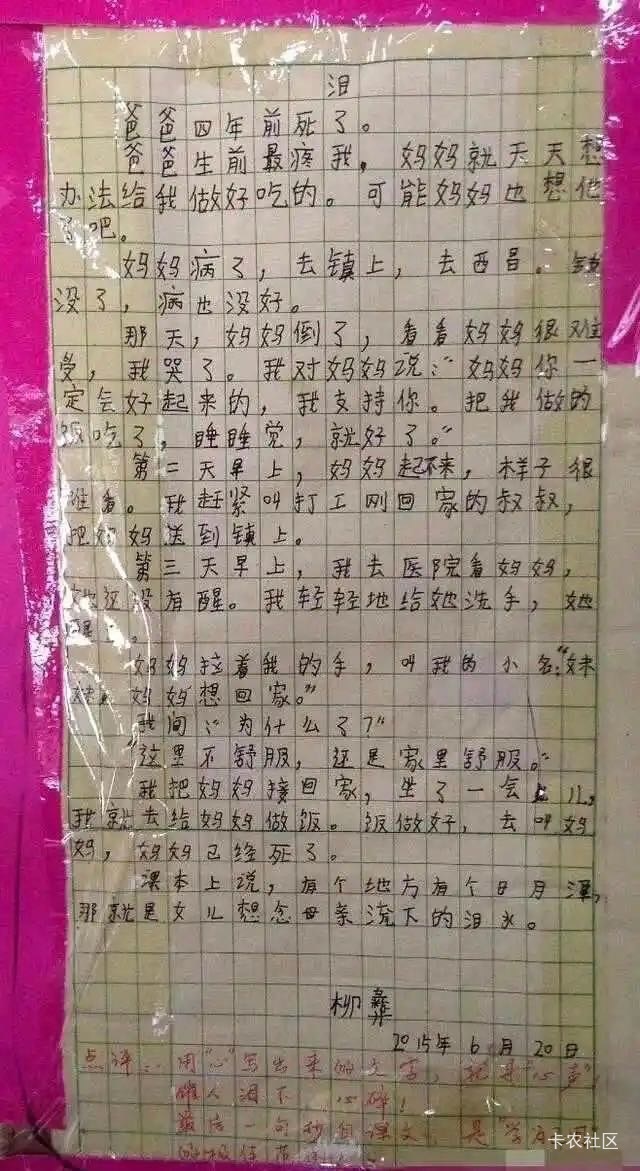 泪
爸爸四年前死了。
爸爸生前最疼我,妈妈就天天想
办法给我做好吃的。可能妈妈也想他
了吧。
妈妈病了,去镇上,去西昌。钱
没了,病也没好。
那天,妈妈倒了,看看妈妈很难
受,我哭了。我对妈妈说:“妈妈你一
定会好起来的,我支持你。把我做的
饭吃了,睡睡觉,就好了。”
第二天早上,妈妈起不来,样子很
难看。我赶紧叫打工刚回家的叔叔,
把妈妈送到镇上。
第三天早上,我去医院看妈妈,
她还没有醒。我轻轻地给她洗手,她
醒了。
妈妈拉着我的手,叫我的小名:“妹
妹,妈妈想回家。”
我问:“为什么了?”
“这里不舒服,还是家里舒服。”
我把妈妈接回家,坐了一会儿,
我就去给妈妈做饭。饭做好,去叫妈
妈,妈妈已经死了。
课本上说,有个地方有个日月潭,
那就是女儿想念母亲流下的泪水。
柳彝
2015年6月20日
点评:用“心”写出来的文字,就是“心声”,
催人泪下,心碎!
最后一句妙用课文,是“学以
卡农社区